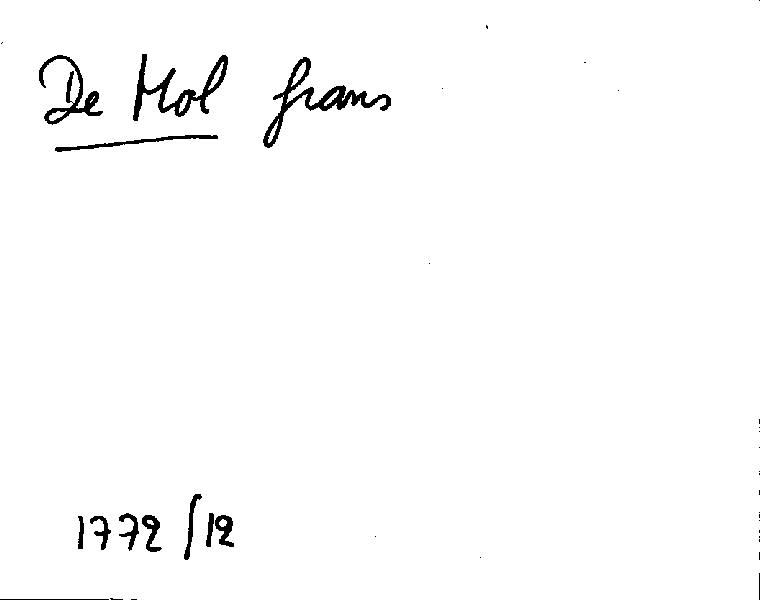 De Mol frans
1772/12